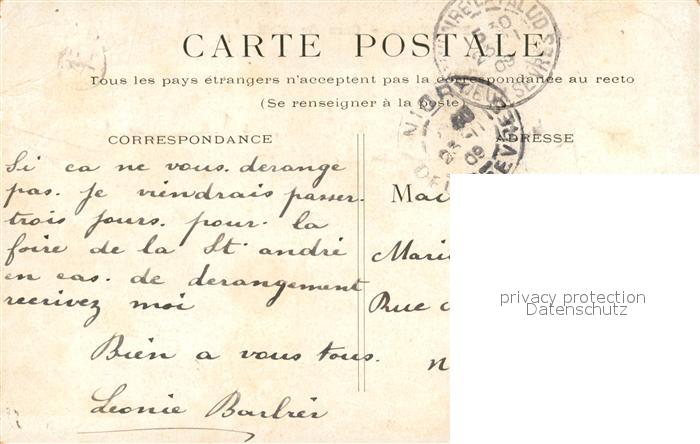 CARTE POSTALE
Tous les pays étrangers n'acceptent pas la correspondance au recto
(Se renseigner à la poste)
CORRESPONDANCE
Si ca ne vous derange
pas. je viendrais passer
trois jours. pour la
foire de la St. andré
en cas. de derangement
recrivez moi
Bien a vous tous.
Leonie
ADRESSE
Rue
privacy protection
Datenschutz
NIORT